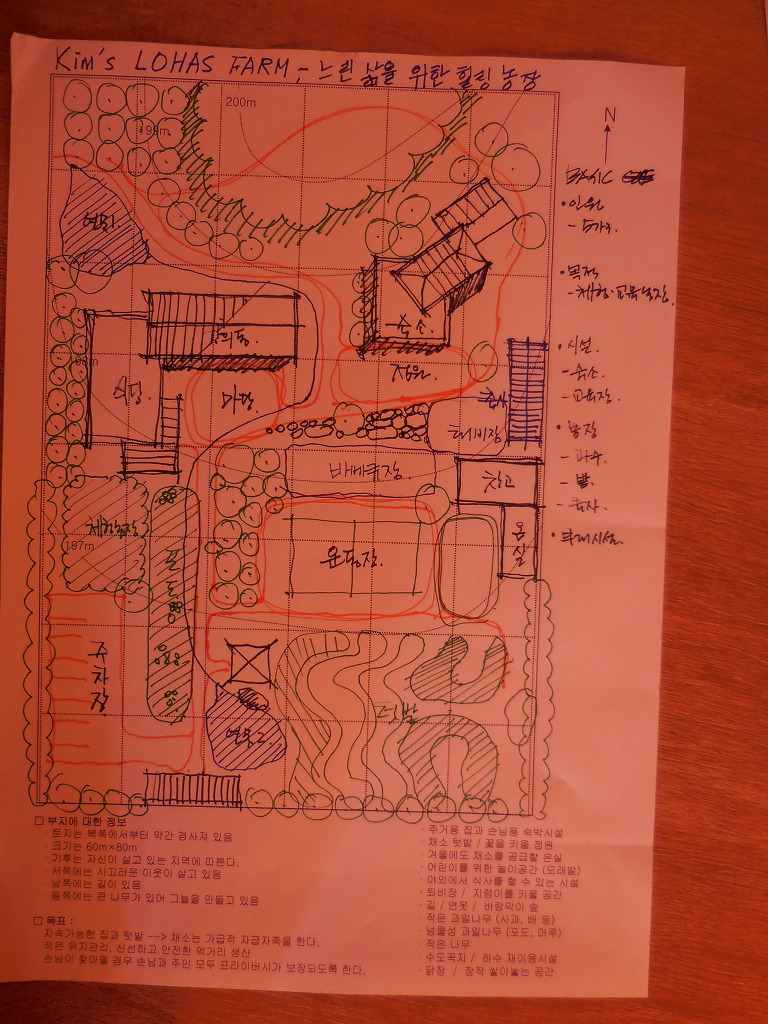 Kim's LOHAS FARM - 느린 삶을 위한 힐링 농장
200m
199m
N
BASIC
• 인원
- 5가구.
• 목적
- 체험·교육농장.
• 시설.
- 숙소
- 교육장.
• 농장
- 과수
- 밭.
- 축사.
• 부대시설.
숙소.
정원.
식당.
마당.
축사
퇴비장
바베큐장
창고
온실
체험농장
197m
포도
운동장.
주차장
연못2
텃밭
□ 부지에 대한 정보
· 토지는 북쪽에서부터 약간 경사져 있음
· 크기는 60m×80m
· 기후는 자신이 살고 있는 지역에 따른다.
· 서쪽에는 시끄러운 이웃이 살고 있음
· 남쪽에는 길이 있음
· 동쪽에는 큰 나무가 있어 그늘을 만들고 있음
□ 목표 :
지속가능한 집과 텃밭 --> 채소는 가급적 자급자족을 한다.
적은 유지관리, 신선하고 안전한 먹거리 생산
손님이 찾아올 경우 손님과 주인 모두 프라이버시가 보장되도록 한다.
· 주거용 집과 손님용 숙박시설
· 채소 텃밭 / 꽃을 키울 정원
· 겨울에도 채소를 공급할 온실
· 어린이를 위한 놀이공간 (모래밭)
· 야외에서 식사를 할 수 있는 시설
· 퇴비장 / 지렁이를 키울 공간
· 길 / 연못 / 바람막이 숲
· 작은 과일나무 (사과, 배 등)
· 넝쿨성 과일나무 (포도, 머루)
· 작은 나무
· 수도꼭지 / 하수 재이용시설
· 닭장 / 장작 쌓아놓는 공간